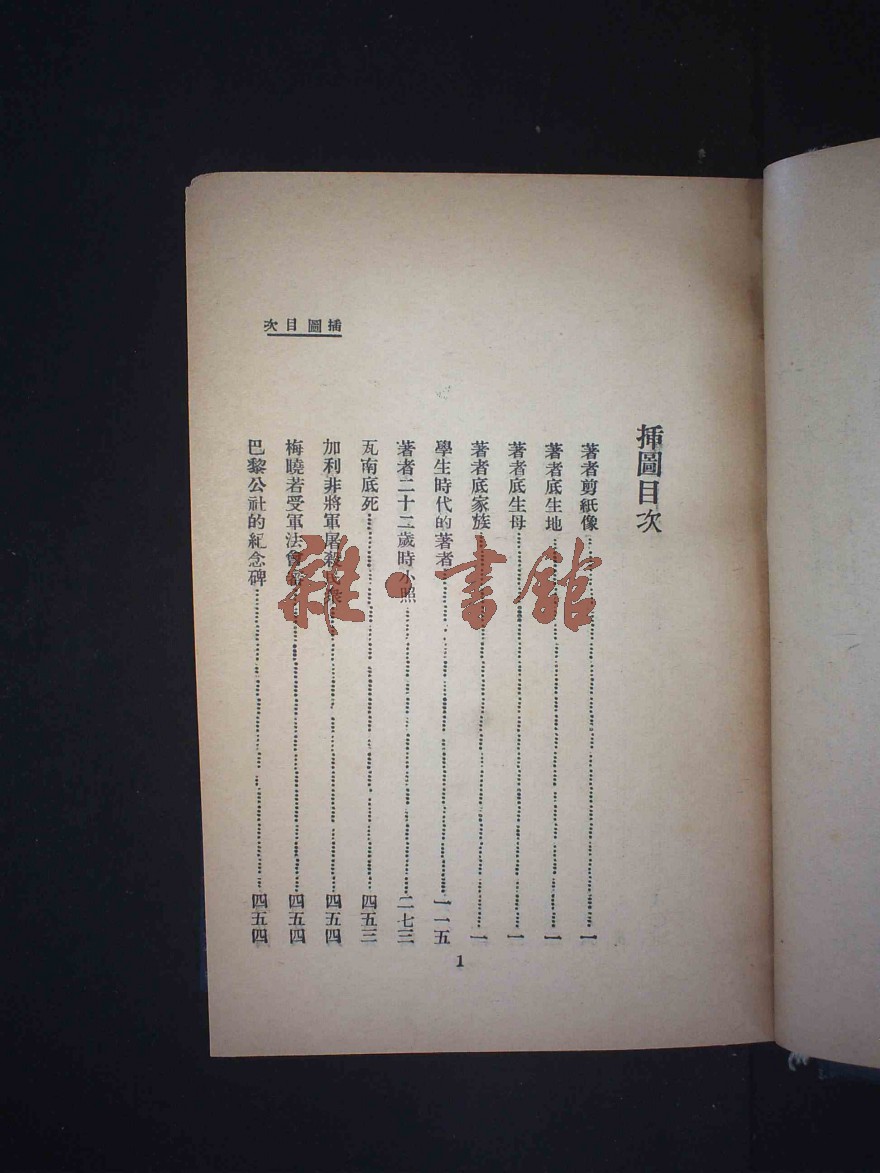 插圖目次
插圖目次
著者剪紙像……一
著者底生地……一
著者底生母……一
著者底家族……一
學生時代的著者……一一五
著者二十二歲時小照……二七三
瓦南底死……四五三
加利非將軍屠殺民衆……四五四
梅曉若受軍法會審……四五四
巴黎公社的紀念碑……四五四
1
雜·書館